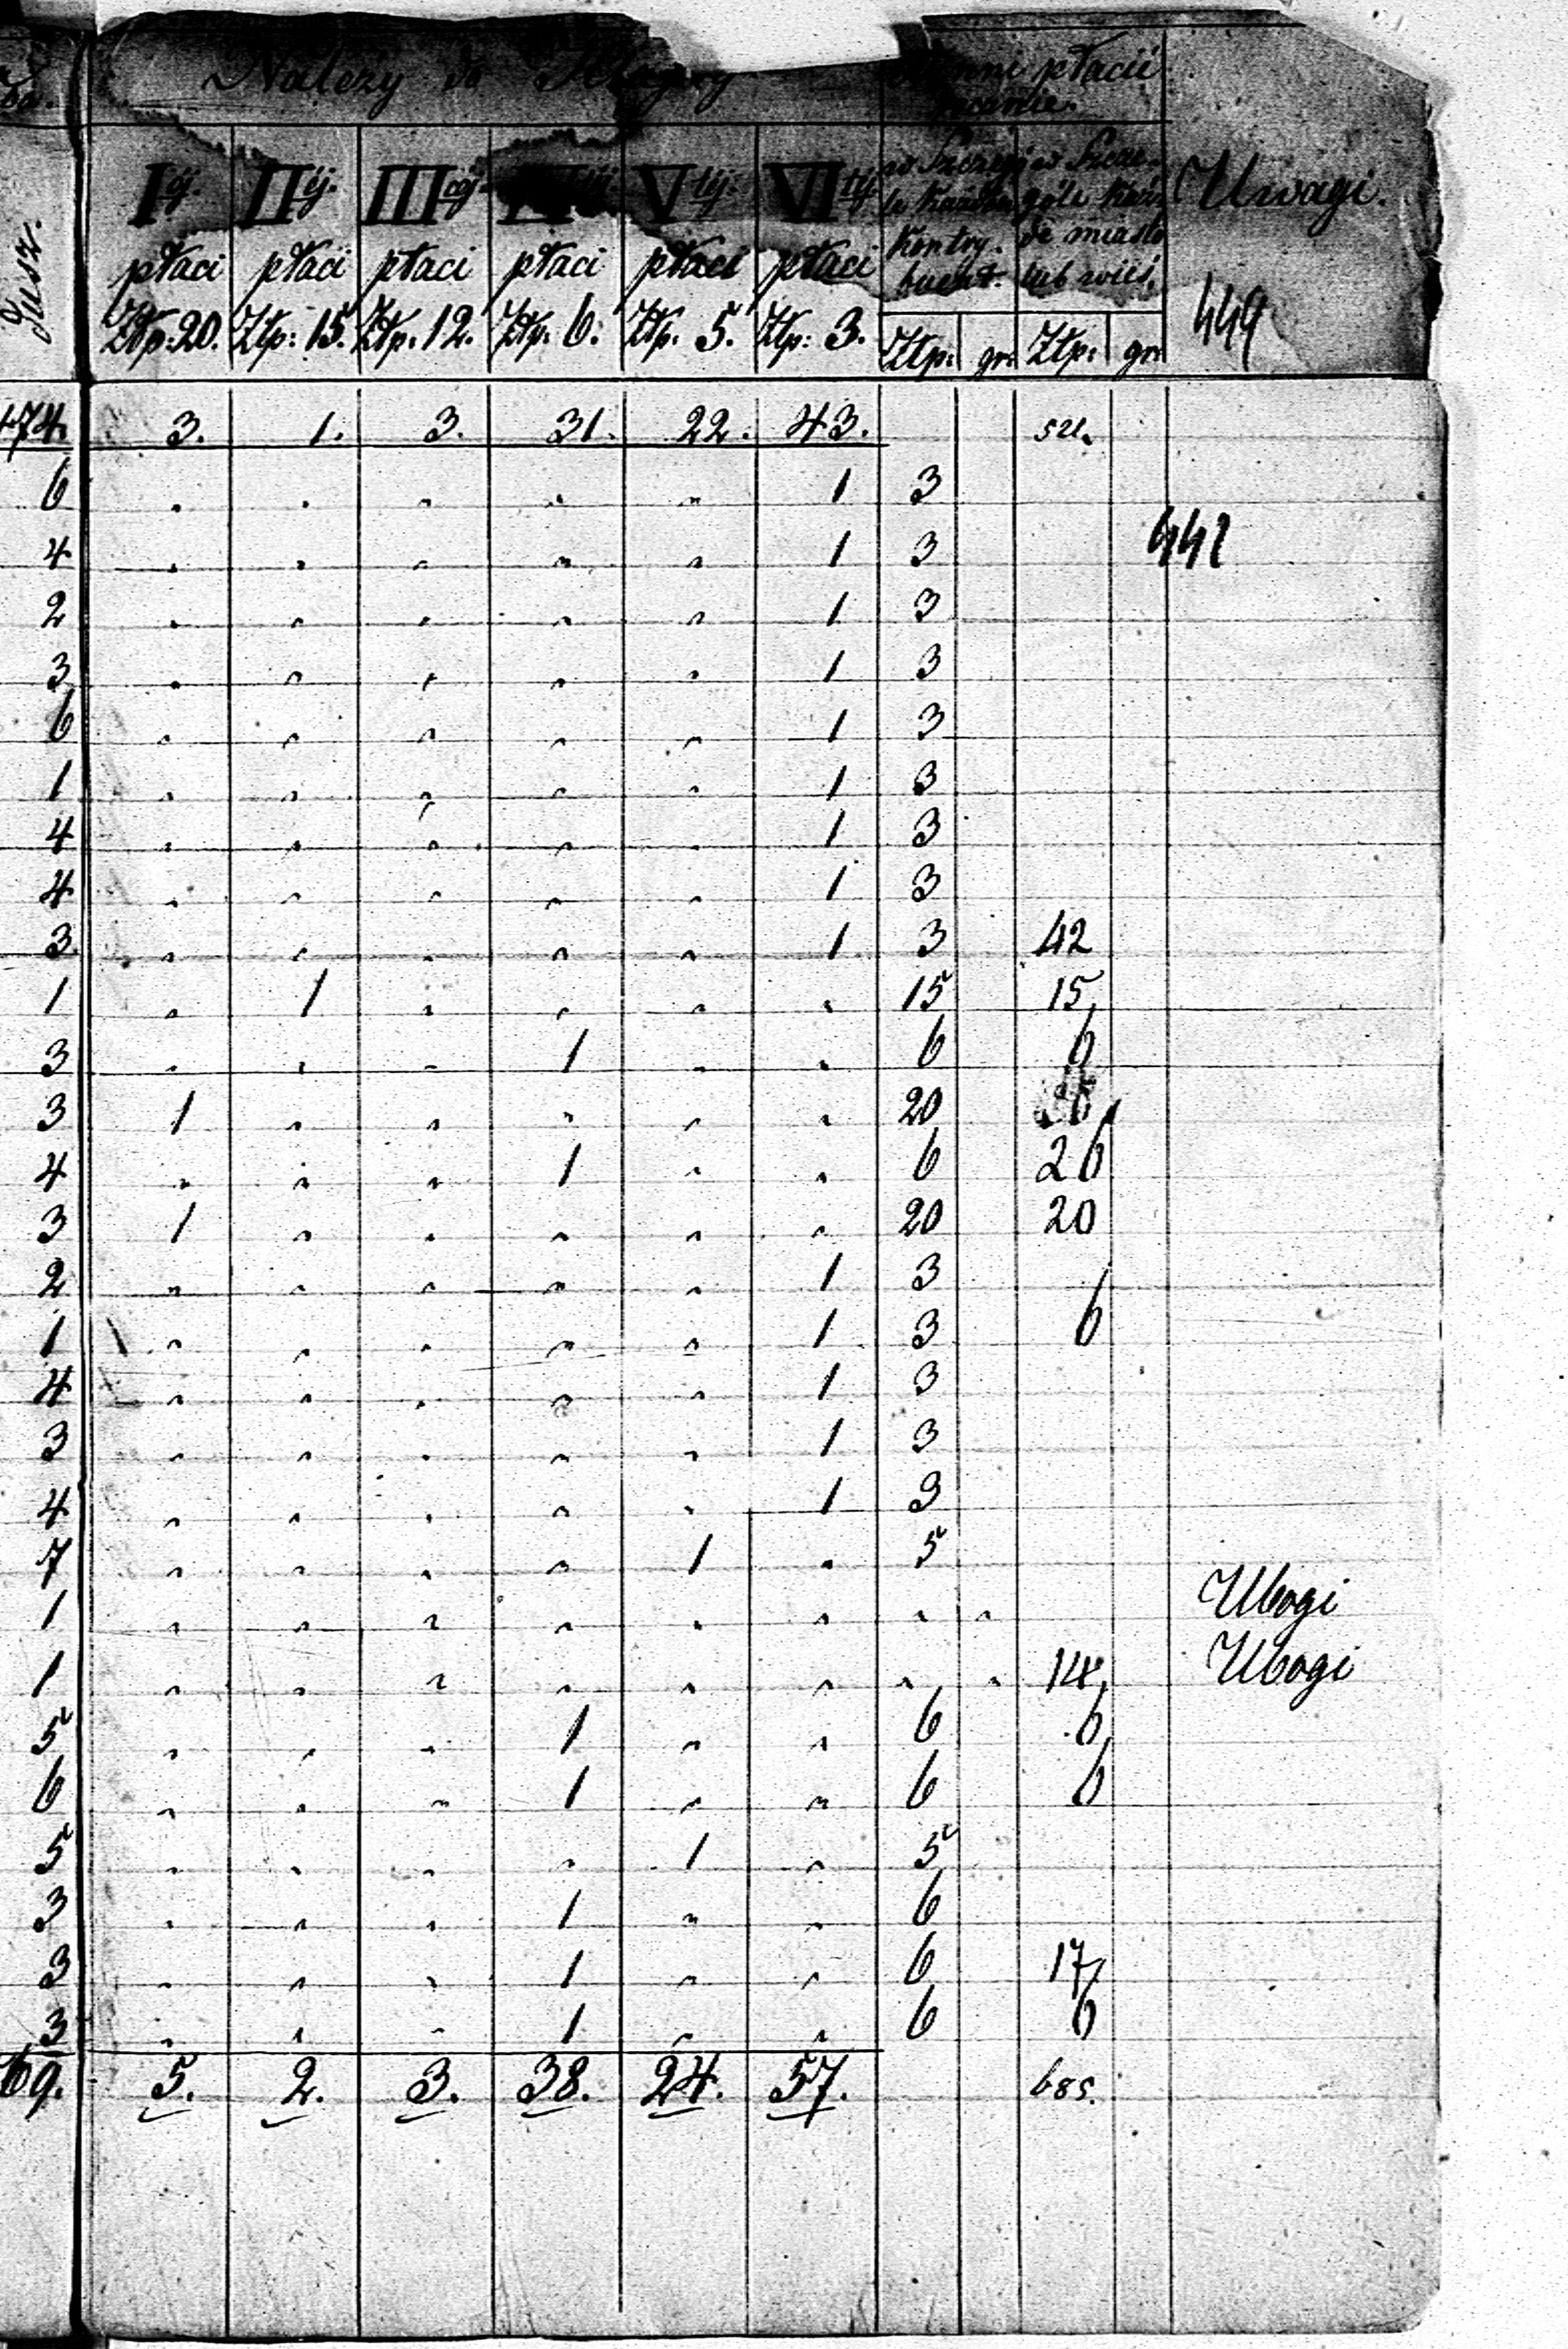 Należy do Klassy
płacić
rocznie.
Dusz.
I éj. II éj. III céj. V téj. VI téj. w Szczegó- w Szcze-
le każden góle każ-
Kontry- de miasto
buent. lub wieś.
Uwagi.
płaci płaci płaci płaci płaci płaci
Złp: 20. Złp: 15. Złp. 12. Złp. 6. Złp. 5. Złp: 3. Złp: gr. Złp: gr.
449
474. 3. 1. 3. 31. 22. 43. 521.
6 " " " " " 1 3
4 " " " " " 1 3 442
2 " " " " " 1 3
3 " " " " " 1 3
6 " " " " " 1 3
1 " " " " " 1 3
4 " " " " " 1 3
4 " " " " " 1 3
3 " " " " " 1 3 42
1 " 1 " " " " 15 15
3 " " " 1 " " 6 6
3 1 " " " " " 20
4 " " " 1 " " 6 26
3 1 " " " " " 20 20
2 " " " " " 1 3
1 " " " " " 1 3 6
4 " " " " " 1 3
3 " " " " " 1 3
4 " " " " " 1 3
7 " " " " 1 " 5
1 " " " " " " " " Ubogi
1 " " " " " " " " 14 Ubogi
5 " " " 1 " " 6 6
6 " " " 1 " " 6 6
5 " " " " 1 " 5
3 " " " 1 " " 6
3 " " " 1 " " 6 17
3 " " " 1 " " 6 6
69. 5. 2. 3. 38. 24. 57. 685.